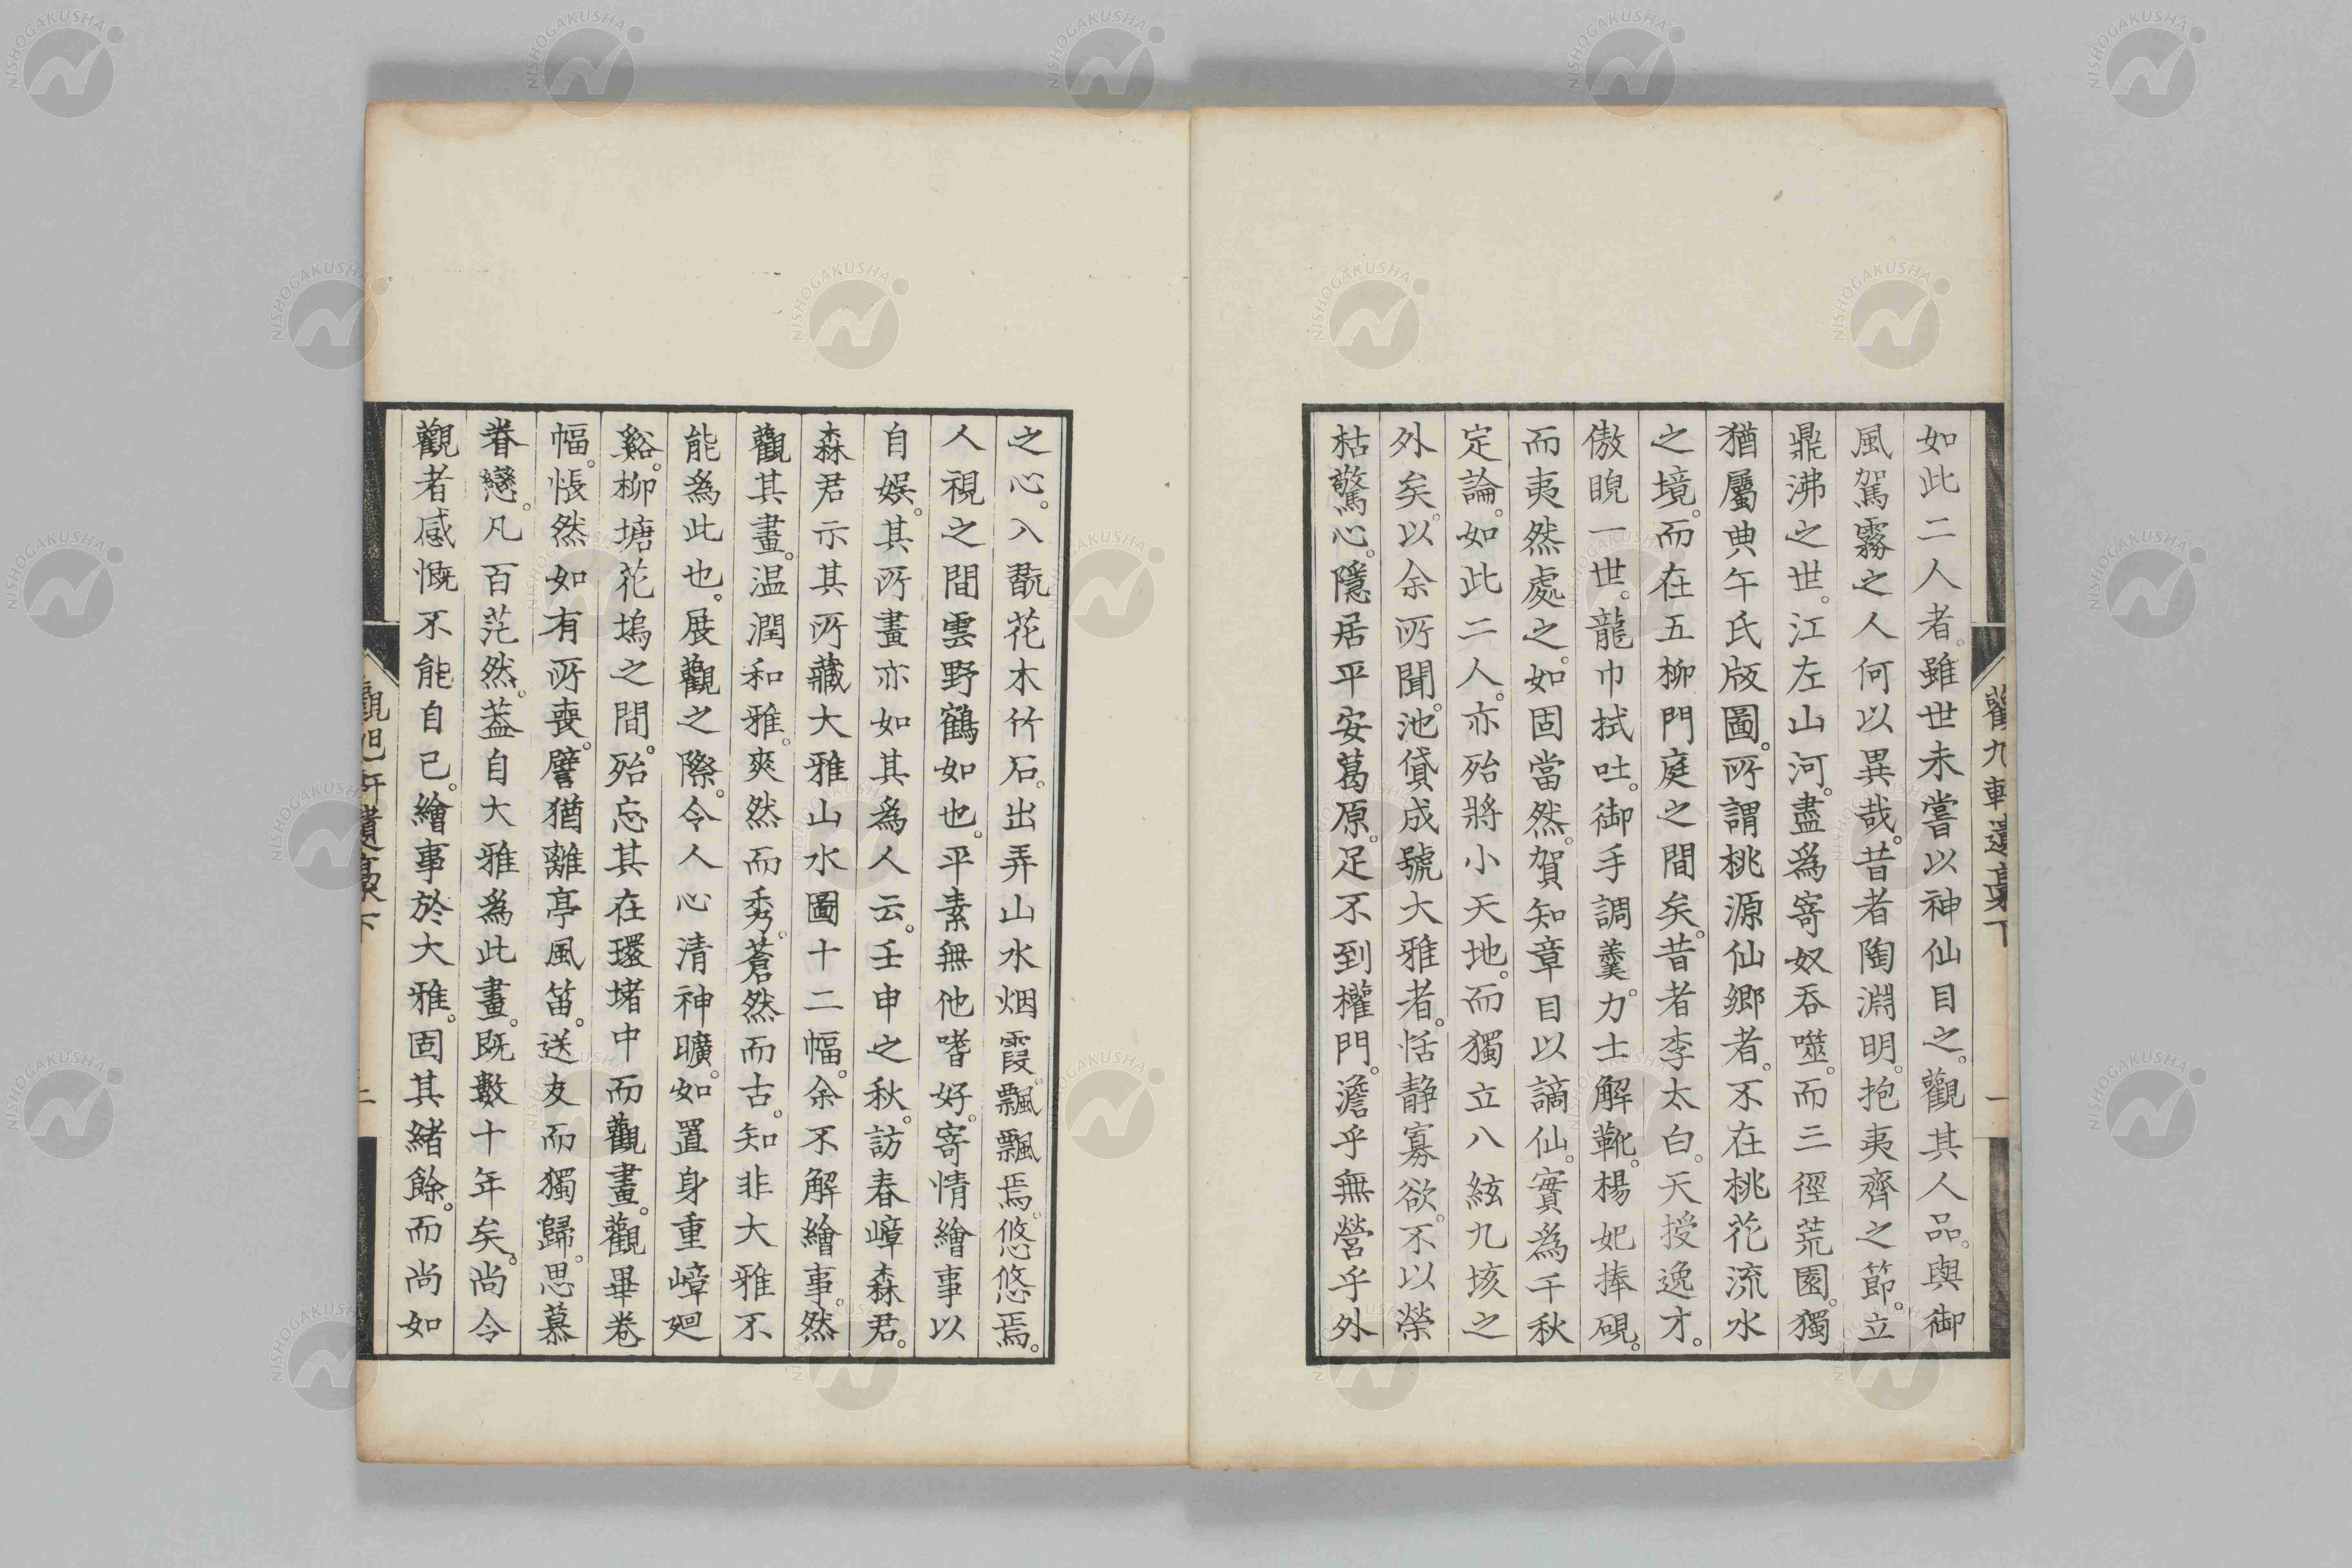 如此二人者。雖世未嘗以神仙目之。觀其人品。與御
風駕霧之人何以異哉。昔者陶淵明。抱夷齊之節。立
鼎沸之世。江左山河。盡爲寄奴吞噬。而三徑荒園。獨
猶屬典午氏版圖。所謂桃源仙鄉者。不在桃花流水
之境。而在五柳門庭之間矣。昔者李太白。天授逸才。
傲睨一世。龍巾拭吐。御手調羹。力士解靴。楊妃捧硯。
而夷然處之。如固當然。賀知章目以謫仙。實爲千秋
定論。如此二人。亦殆將小天地。而獨立八紘九垓之
外矣。以余所聞。池貸成號大雅者。恬靜寡欲。不以榮
枯驚心。隱居平安葛原。足不到權門。澹乎無營乎外
之心。入翫花木竹石。出弄山水烟霞。飄飄焉。悠悠焉。
人視之間雲野鶴如也。平素無他嗜好。寄情繪事以
自娛。其所畫亦如其爲人云。壬申之秋。訪春嶂森君。
森君示其所藏大雅山水圖十二幅。余不解繪事。然
觀其畫。温潤和雅。爽然而秀。蒼然而古。知非大雅不
能爲此也。展觀之際。令人心清神曠。如置身重嶂廻
谿。柳塘花塢之間。殆忘其在環堵中而觀畫。觀畢卷
幅。悵然如有所喪。譬猶離亭風笛。送友而獨歸。思慕
眷戀。凡百茫然。葢自大雅爲此畫。既數十年矣。尚令
觀者感慨不能自已。繪事於大雅。固其緒餘。而尚如
NISHOGAKUSHA